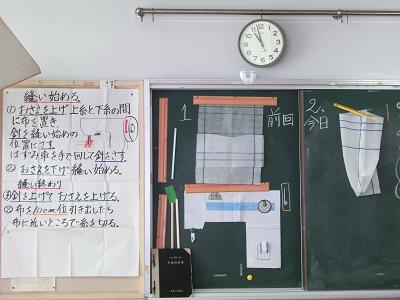 縫い始める
① おさえを上げ 上糸と下糸の間
に布を置き
針を縫い始めの
位置にさす
はずみ車を手で回して針をさす。
② おさえを下げ 縫い始める。
縫い終わり
① 針を上げて おさえを上げる。
② 布を10cm位引き出したら
布に近いところで糸を切る。
1
前回
2、
今日
3